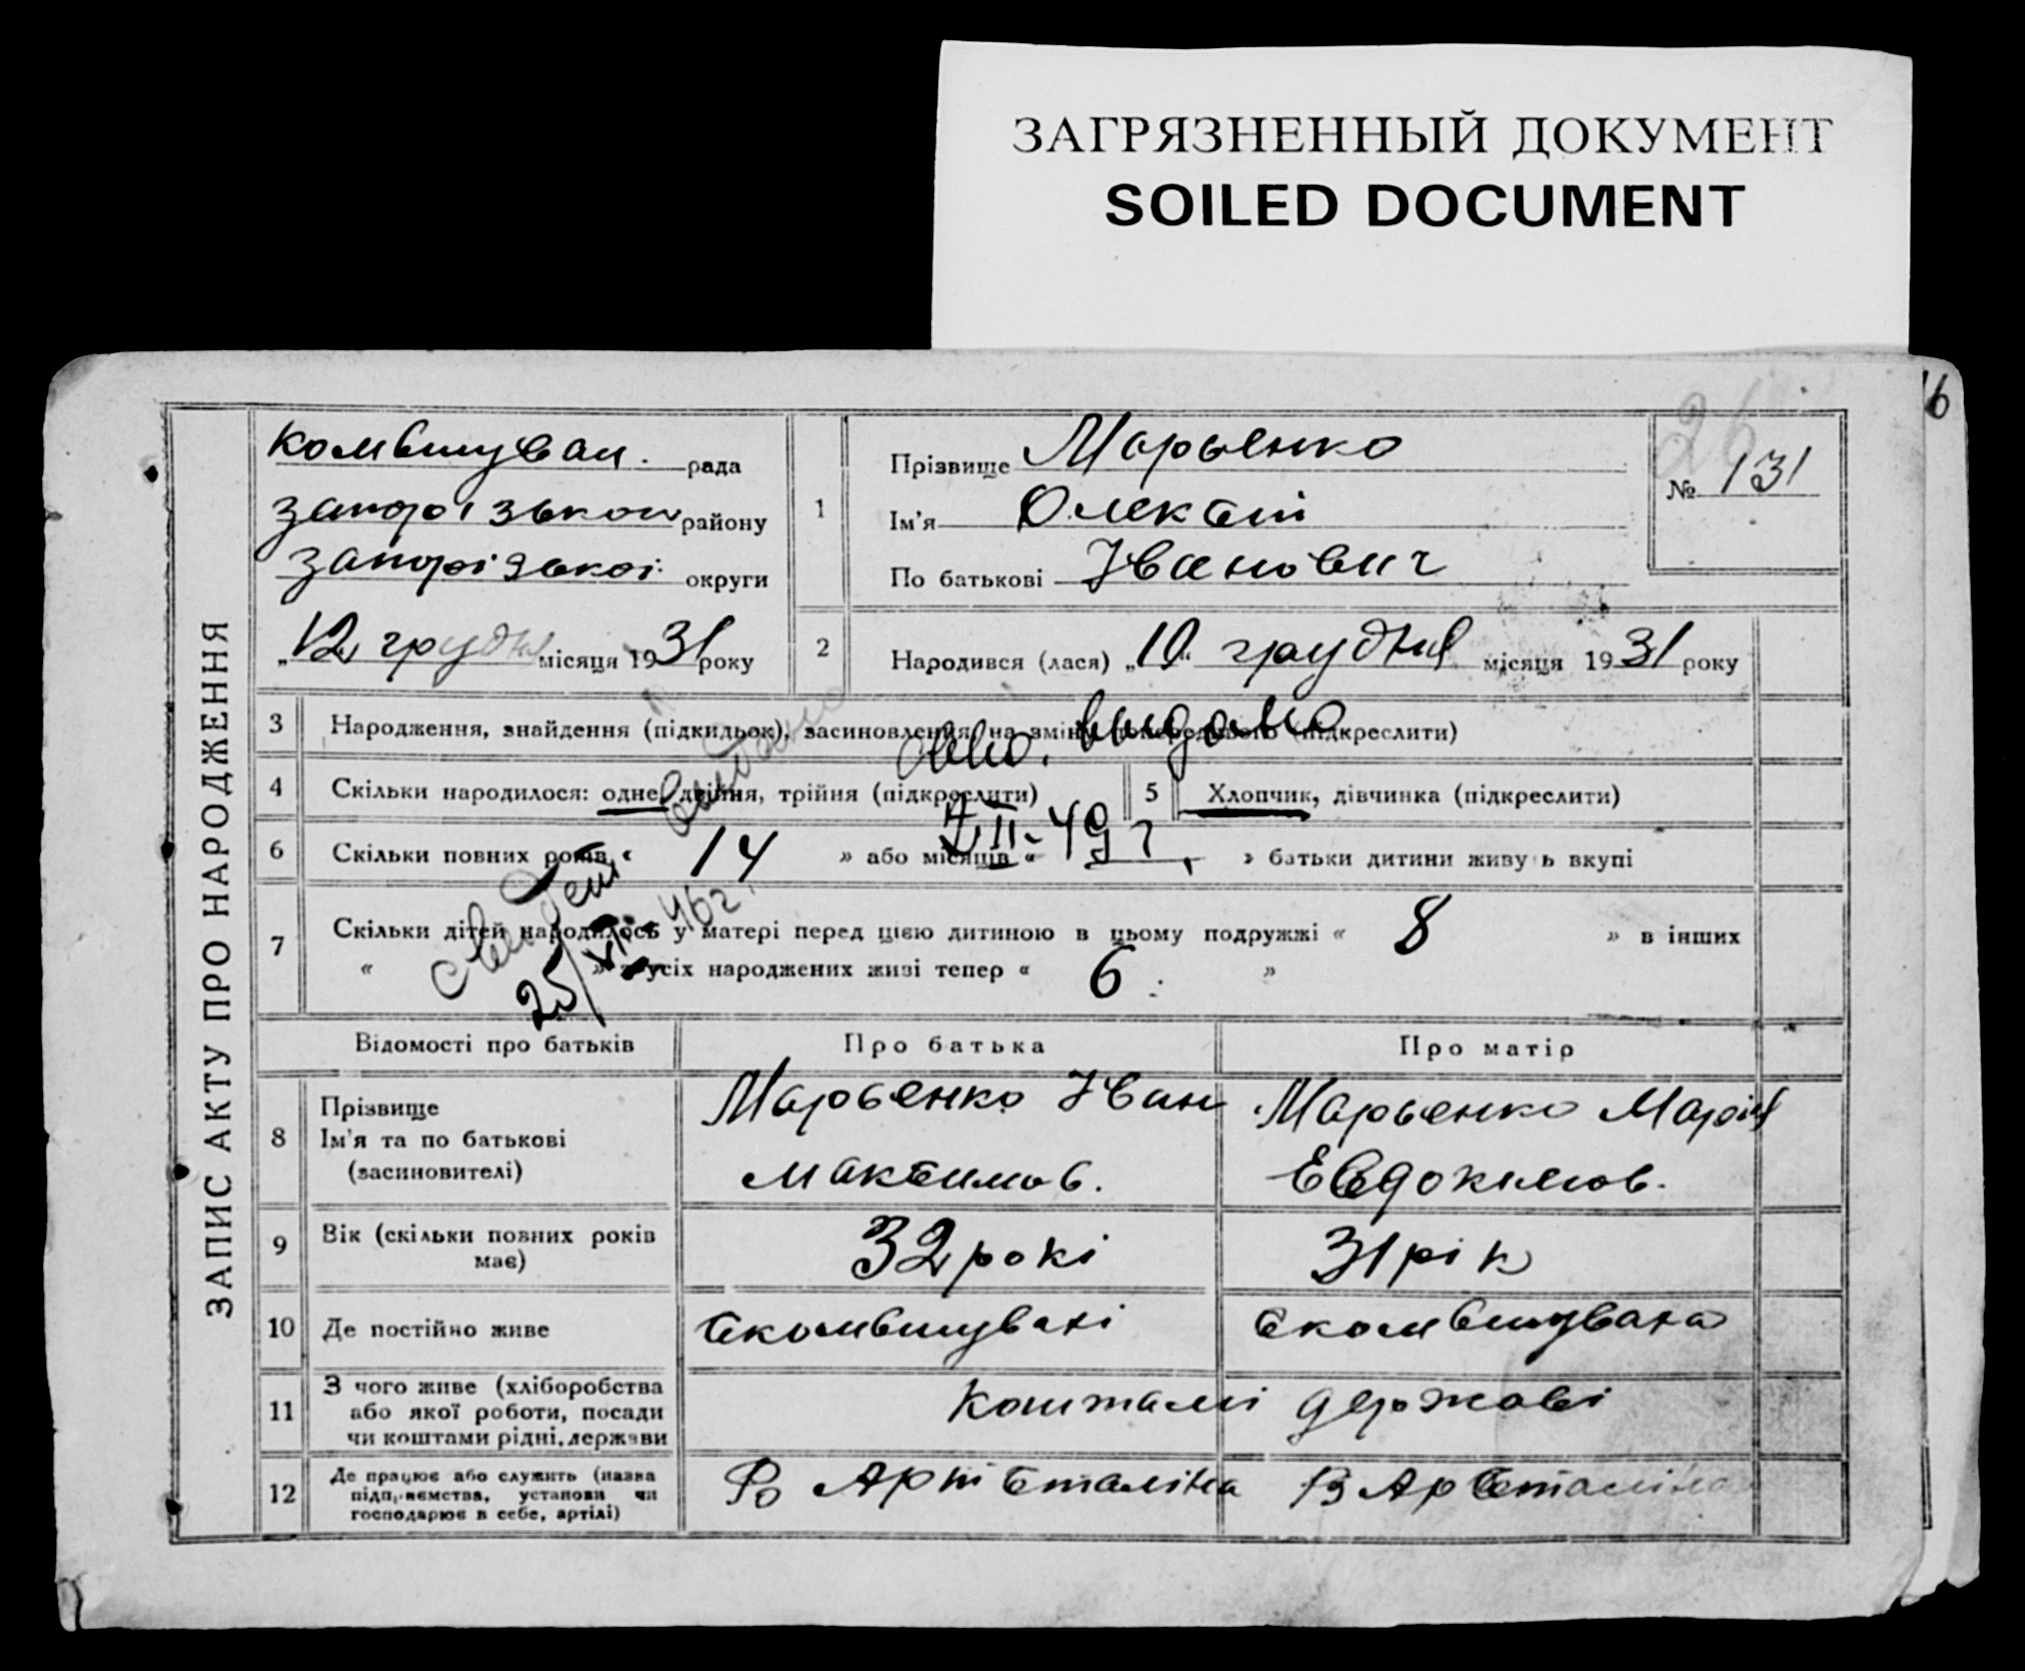 ЗАГРЯЗНЕННЫЙ ДОКУМЕНТ
SOILED DOCUMENT
16
26
ЗАПИС АКТУ ПРО НАРОДЖЕННЯ
Комвишуван. рада
запорізькои району
запорізької округи
„12 грудня місяця 1931 року
1
Прізвище Марьенко
Ім'я Олексій
По батькові Іванович
№ 131
2
Народився (лася) „10" грудня місяця 1931 року
3 Народження, знайдення (підкидьок), засиновлення, на зміну попереднього (підкреслити)
свид. выдано
4 Скільки народилося: одне, двійня, трійня (підкреслити) 5 Хлопчик, дівчинка (підкреслити)
6 Скільки повних років « 14 » або місяців « » батьки дитини живуть вкупі
II-49 г.
7 Скільки дітей народилось у матері перед цією дитиною в цьому подружжі « 8 » в інших
« » з усіх народжених живі тепер « 6 »
выдано
25/VII-46г.
Відомості про батьків Про батька Про матір
8 Прізвище Ім'я та по батькові (засиновителі)
Марьенко Іван
Максимов.
Марьенко Марія
Евдокимов.
9 Вік (скільки повних років має) 32 рокі 31 рік
10 Де постійно живе скомвишувахі скомвишуваха
11 З чого живе (хліборобства або якої роботи, посади чи коштами рідні, держави
Коштамі державі
12 Де працює або служить (назва підприємства, установи чи господарює в себе, артілі)
Арт Сталіна В Ар Сталіна